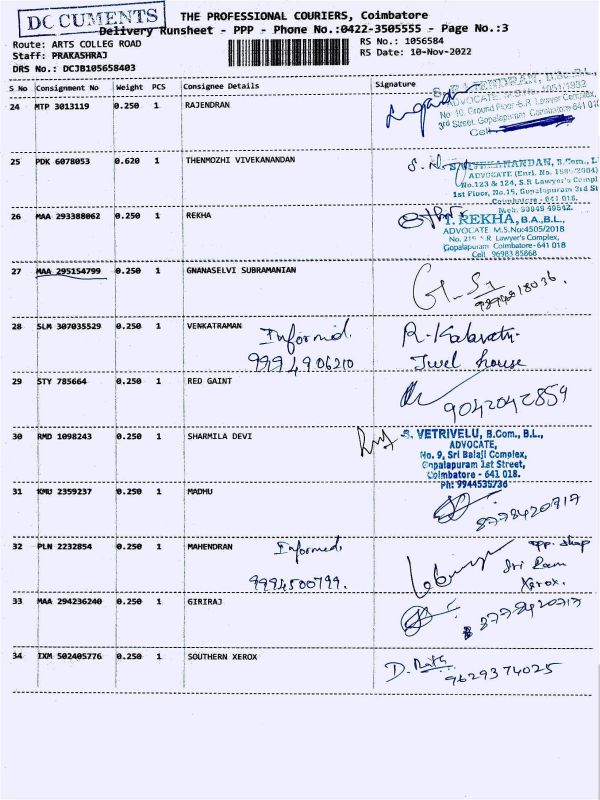 DOCUMENTS
THE PROFESSIONAL COURIERS, Coimbatore
Delivery Runsheet - PPP - Phone No.:0422-3505555 - Page No.:3
Route: ARTS COLLEG ROAD
RS No.: 1056584
Staff: PRAKASHRAJ
RS Date: 10-Nov-2022
DRS No.: DCJB105658403
S No Consignment No Weight PCS Consignee Details Signature
24 MTP 3013119 0.250 1 RAJENDRAN
No 10, Ground Floor S.R Lawyer Complex,
3rd Street, Gopalapuram Coimbatore-641 018
Cell
25 PDK 6078053 0.620 1 THENMOZHI VIVEKANANDAN
ADVOCATE (Enrl. No. 1587/2004)
No.123 & 124, S.R Lawyer's Compl
1st Floor, No.15, Gopalapuram 3rd St
Coimbatore - 641 018.
26 MAA 293388062 0.250 1 REKHA
T. REKHA, B.A.,B.L.,
ADVOCATE M.S.No:4505/2018
No. 215 S.R Lawyer's Complex,
Gopalapuram Coimbatore-641 018
Cell 96983 85868
27 MAA 295154799 0.250 1 GNANASELVI SUBRAMANIAN
28 SLM 307035529 0.250 1 VENKATRAMAN Informed. R. Kalavathi
9994906210 Jwel house
29 STY 785664 0.250 1 RED GAINT
9042042859
30 RMD 1098243 0.250 1 SHARMILA DEVI
S. VETRIVELU, B.Com., B.L.,
ADVOCATE,
No. 9, Sri Balaji Complex,
Gopalapuram 1st Street,
Coimbatore - 641 018.
Ph: 9944535736
31 KMU 2359237 0.250 1 MADHU
8778420717
32 PLN 2232854 0.250 1 MAHENDRAN Informed. opp. shop
9994500799. Sri Ram
Xerox.
33 MAA 294236240 0.250 1 GIRIRAJ
8778420717
34 IXM 502405776 0.250 1 SOUTHERN XEROX
9629374025